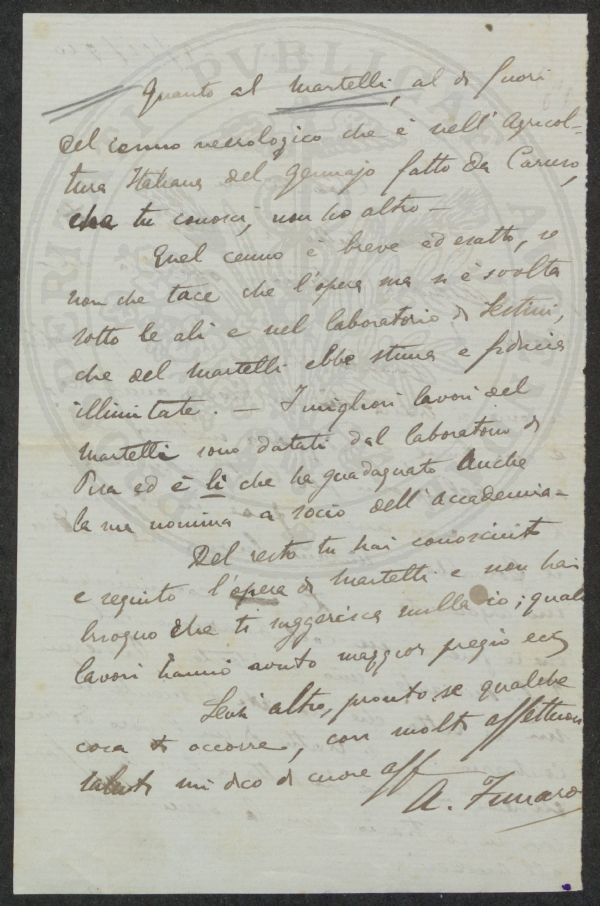 Quanto al Martelli, al di fuori
del cenno necrologico che è nell'Agricol-
tura Italiana del Gennajo fatto da Caruso,
che tu conosci, non ho altro —
Quel cenno è breve ed esatto, se
non che tace che l'opera sua si è svolta
sotto le ali e nel laboratorio di Sestini,
che del Martelli ebbe stima e fiducia
illimitate. — I migliori lavori del
Martelli sono datati dal laboratorio di
Pisa ed è lì che ha guadagnato anche
la sua nomina a socio dell'Accademia —
Del resto tu hai conosciuto
e seguito l'opera di Martelli e non hai
bisogno che ti suggerisca nulla io; quali
lavori hanno avuto maggior pregio ecc
altro, pronto se qualche
cosa ti occorre, con molti affettuosi
saluti mi dico di cuore aff
A. Funaro